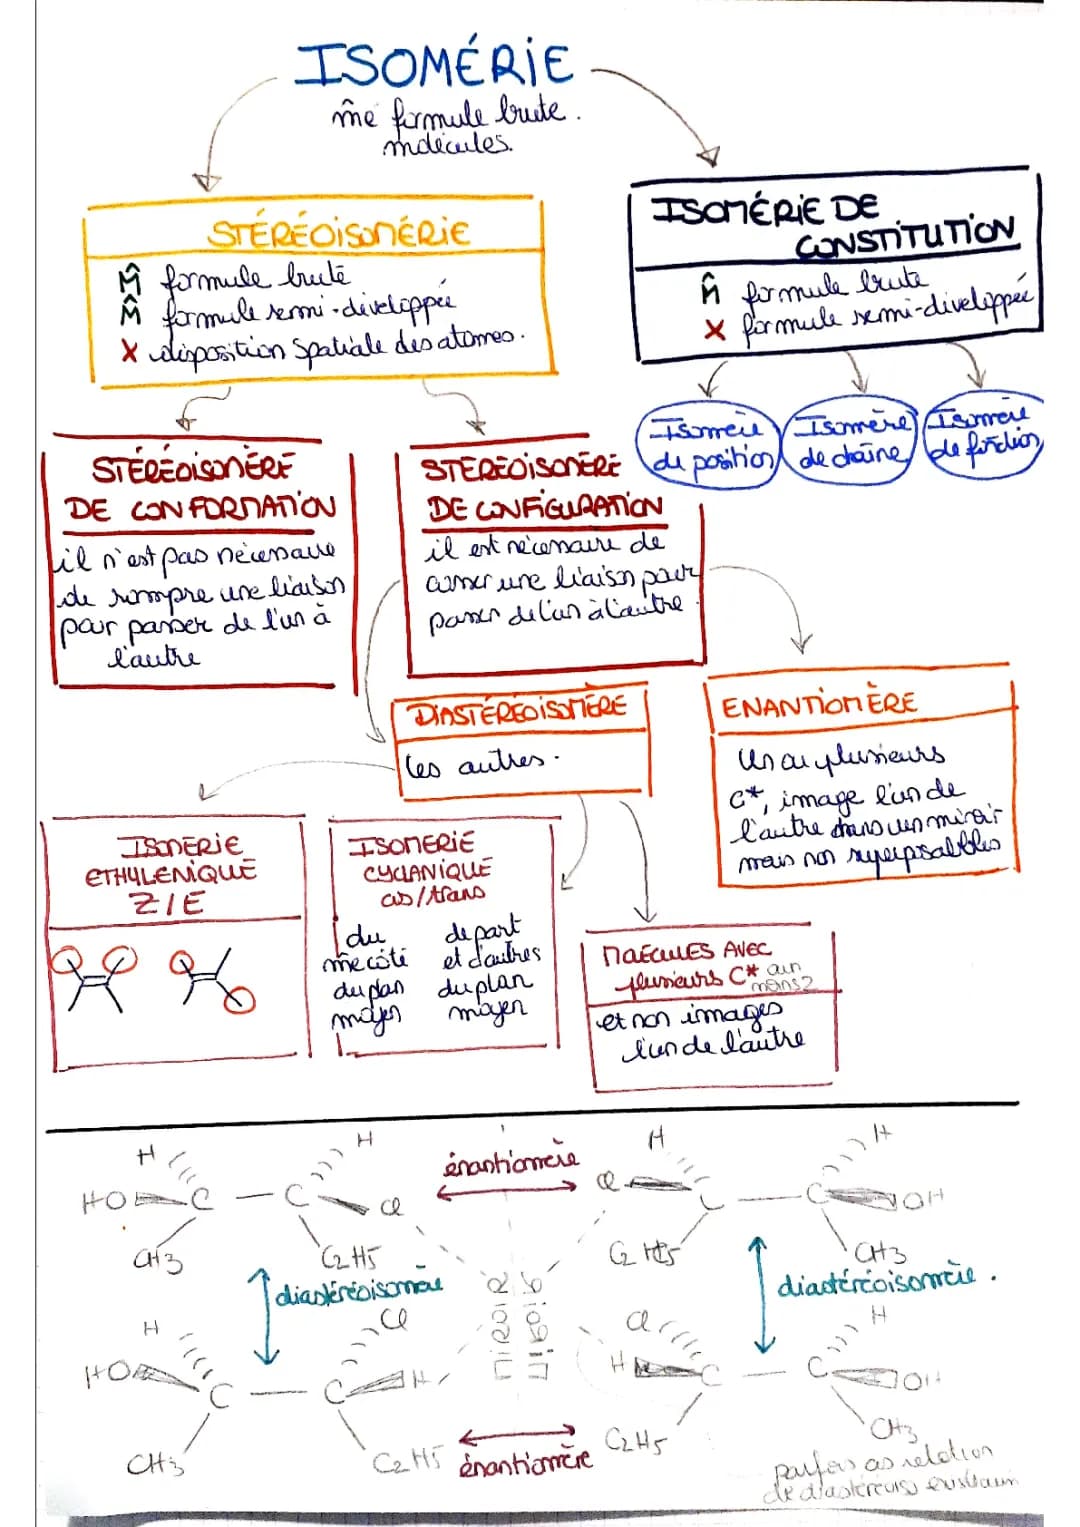 ISOMÉRIE
m̂e formule brute.
molécules.
STÉRÉOISOMÉRIE
M̂ formule brute
M̂ formule semi-développée
X disposition spatiale des atomes.
ISOMÉRIE DE
CONSTITUTION
m̂ formule brute
X formule semi-développée
Isomère
de position
Isomère
de chaîne
Isomère
de fonction
STÉRÉOISOMÈRE
DE CONFORMATION
il n'est pas nécessaire
de rompre une liaison
pour passer de l'un à
l'autre
STEREOISOMÈRE
DE CONFIGURATION
il est nécessaire de
casser une liaison pour
passer de l'un à l'autre.
DIASTÉRÉOISOMÈRE
les autres.
ENANTIOMÈRE
Un ou plusieurs
C*, image l'un de
l'autre dans un miroir
mais non superposables
ISOMERIE
ETHYLENIQUE
Z/E
ISOMERIE
CYCLANIQUE
cis/trans
du
m̂e côté
du plan
moyen
de part
et d'autres
du plan
moyen
MOLÉCULES AVEC
plusieurs C* au
moins 2
et non images
l'un de l'autre
H
H
énantiomère
H
H
HO
C
C
Cl
Cl
C
C
OH
CH3
C2H5
C2H5
CH3
diastéréoisomère
diastéréoisomère.
H
Cl
Cl
H
HO
C
C
H
H
C
C
OH
CH3
C2H5
énantiomère
C2H5
CH3
parfois
relation
de